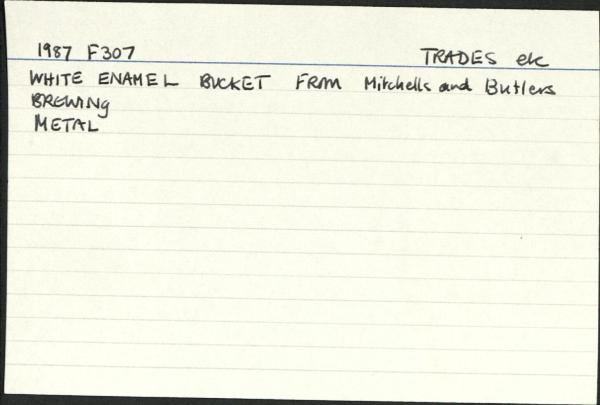 1987 F307 TRADES etc
WHITE ENAMEL BUCKET FROM Mitchells and Butlers
BREWINg
METAL